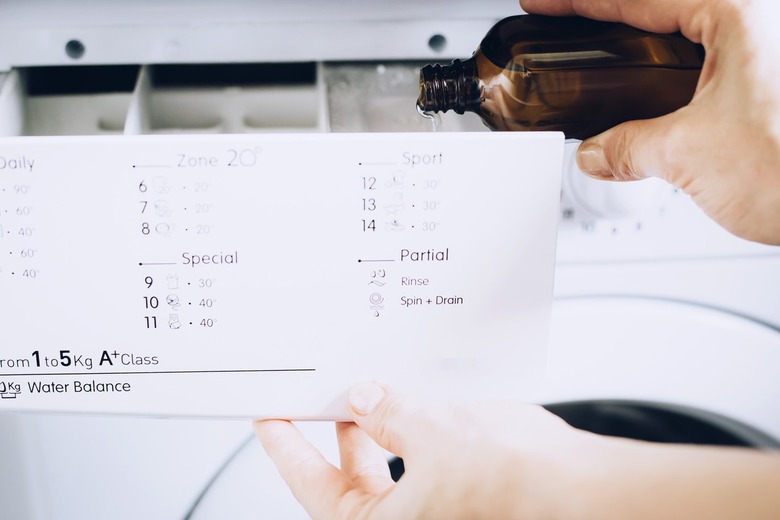 Daily
· 90°
· 60°
· 40°
· 60°
· 40°
Zone 20°
6 · 20°
7 · 20°
8 · 20°
Special
9 · 30°
10 · 40°
11 · 40°
Sport
12 · 30°
13 · 30°
14 · 30°
Partial
Rinse
Spin + Drain
rom 1 to 5Kg A+ Class
Kg Water Balance